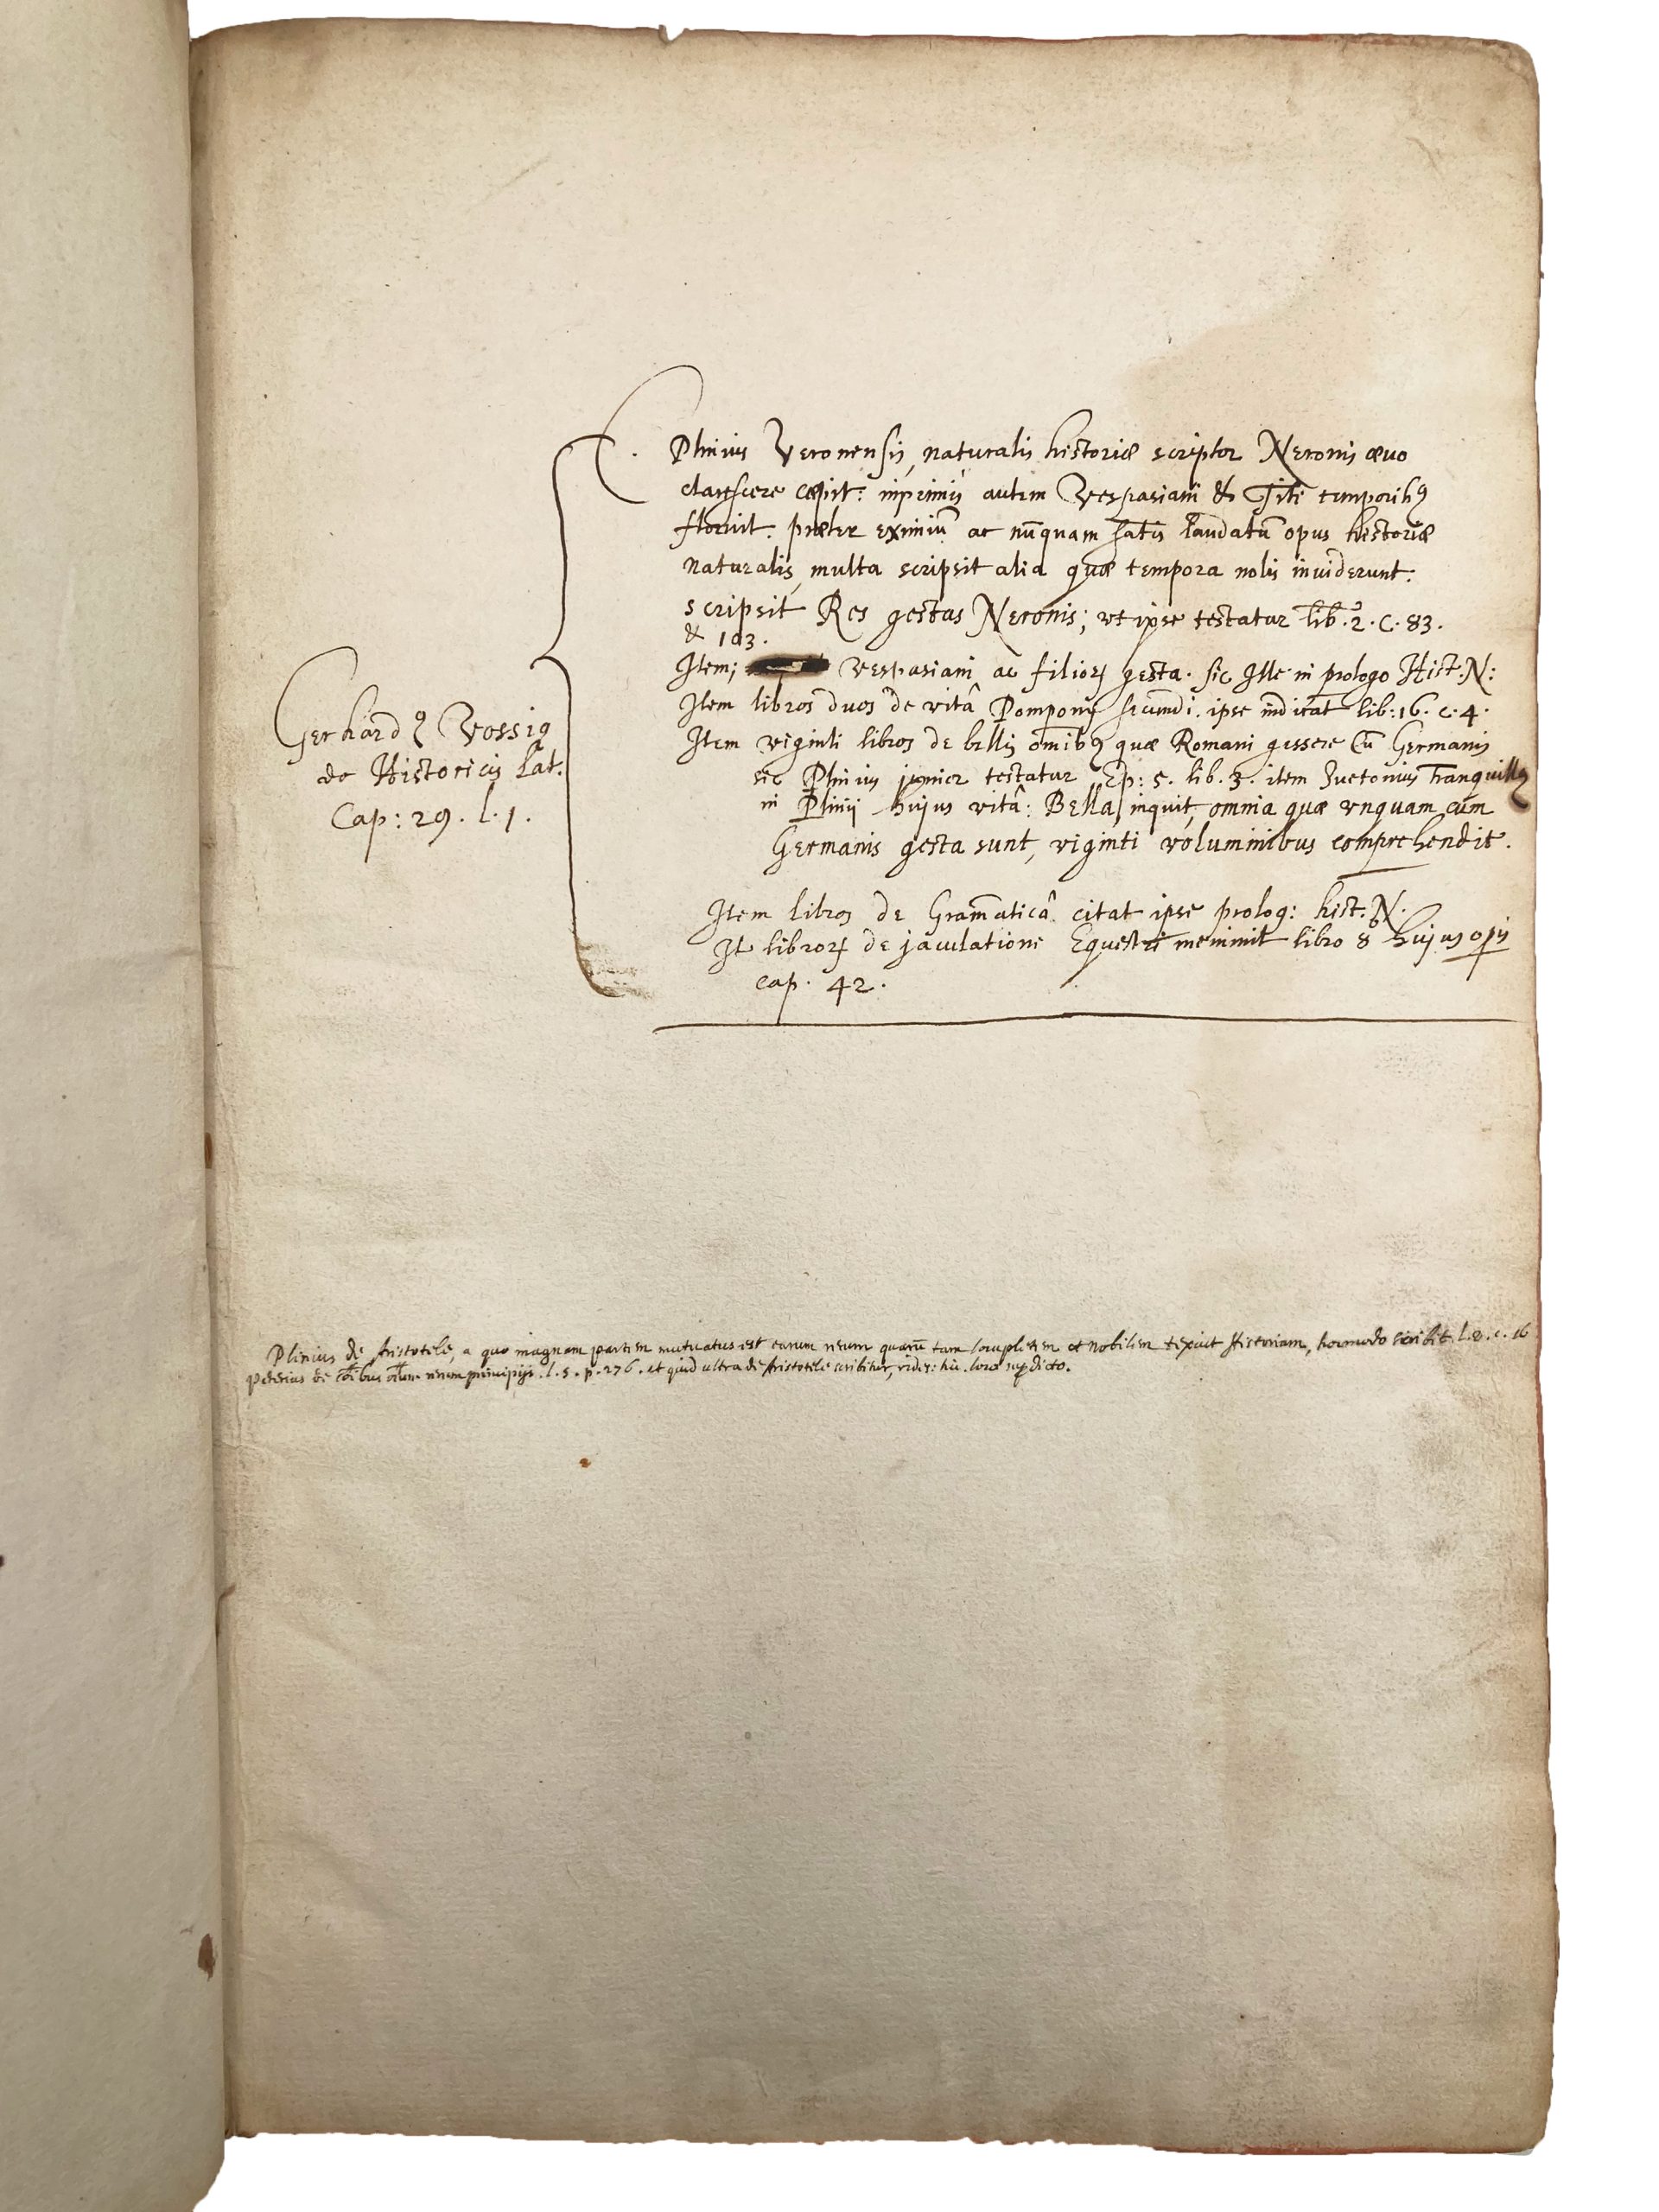 C. Plinius Veronensis, naturalis historiæ scriptor Neronis ævo
clarescere cæpit: inprimis autem Vespasiani & Titi temporibꝰ
floruit. præter eximiū ac nūquam satis laudatū opus historiæ
naturalis, multa scripsit alia quæ tempora nobis inviderunt.
scripsit Res gestas Neronis; vt ipse testatur lib. 2. c. 83.
& 103.
Item; Vespasiani ac filioꝝ gesta. sic Ille in prologo Hist. N:
Item libros duos de vitâ Pomponij secundi. ipse indicat lib: 16. c. 4.
Item viginti libros de bellis omībꝰ quæ Romani gessere cū Germanis
sic Plinius junior testatur Ep: 5. lib. 3. item Suetonius Tranquillꝰ
in Plinij hujus vitâ: Bella, inquit, omnia quæ vnquam cum
Germanis gesta sunt, viginti voluminibus comprehendit.
Item libros de Gram̄aticâ citat ipse prolog: hist. N.
It libroꝝ de jaculatione Equestri meminit libro 8 hujus opis
cap. 42.
Gerhardꝰ Vossiꝰ
de Historicis Lat.
Cap: 29. l. 1.
Plinius de Aristotele, a quo magnam partem mutuatus est earum rerum quarū tam locupletem et nobilem texuit Historiam, hocmodo scribit. l. 8. c. 16
pererius de cōibus oīum rerum principijs. l. 5. p. 276. et quid ultra de Aristotele scribitur, vides: hic. loco supdicto.